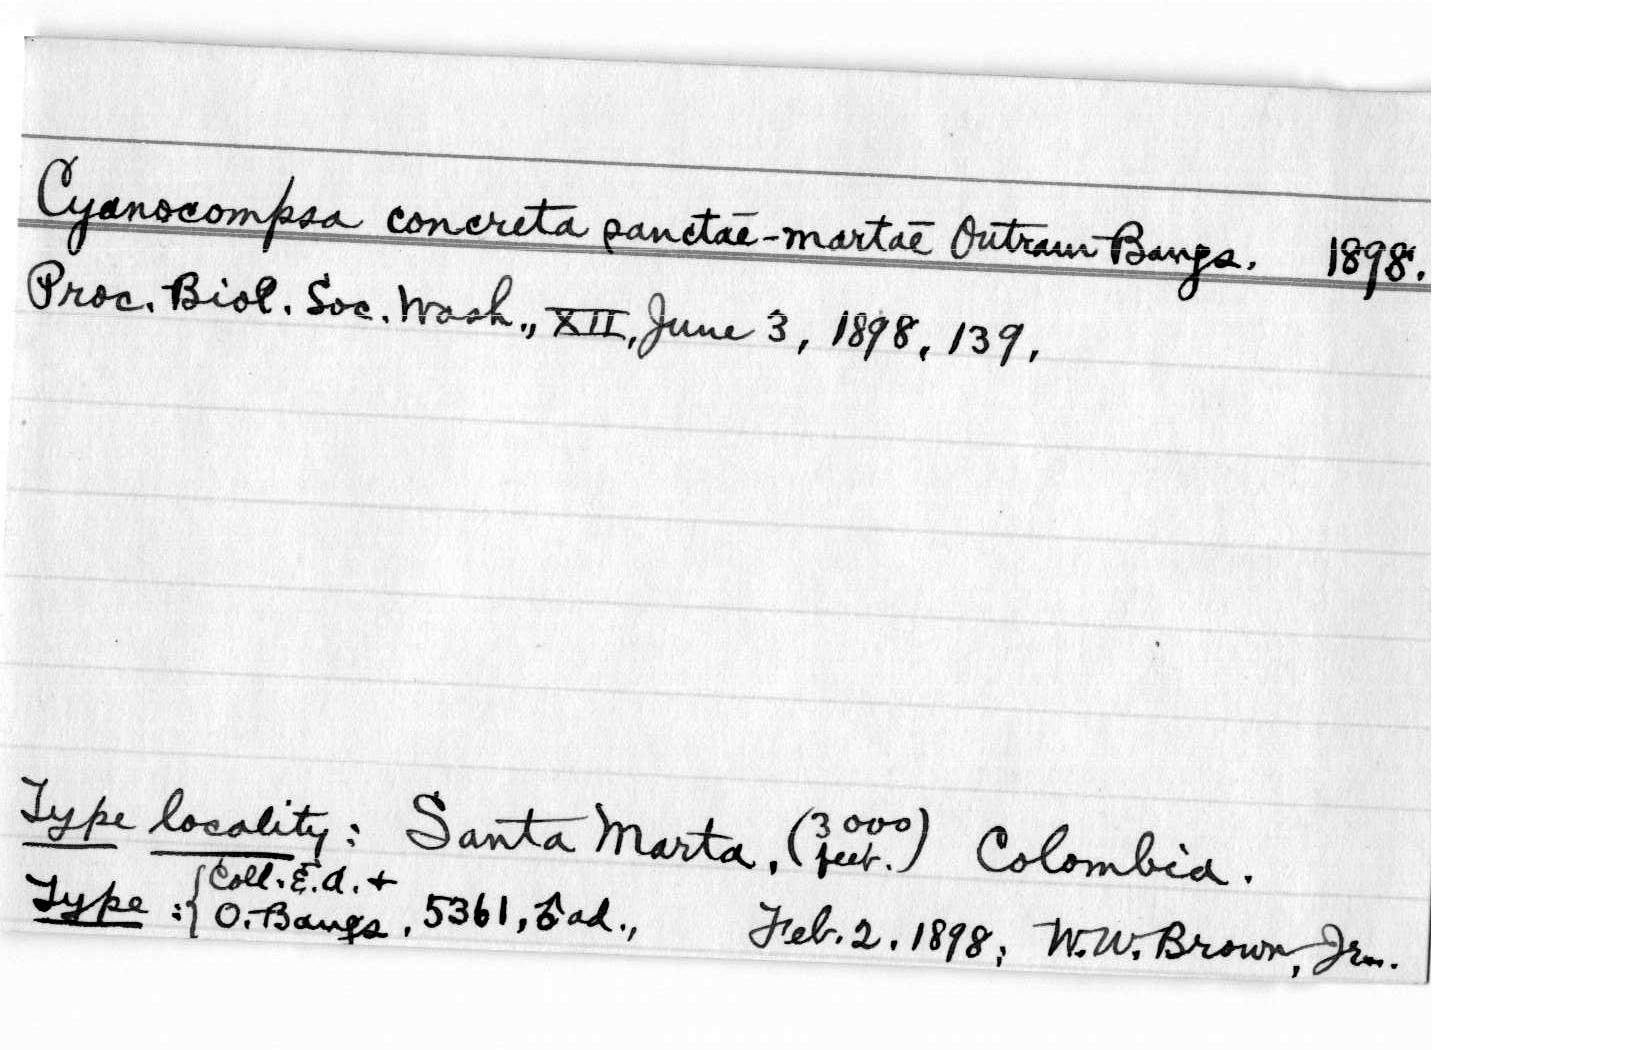 Cyanocompsa concreta sanctae-martae Outram Bangs. 1898.
Proc. Biol. Soc. Wash., XII, June 3, 1898, 139.
Type locality: Santa Marta, (3000 feet.) Colombia.
Type: {Coll. E.A. + O. Bangs, 5361, ♂ ad., Feb. 2, 1898; W.W. Brown, Jr.